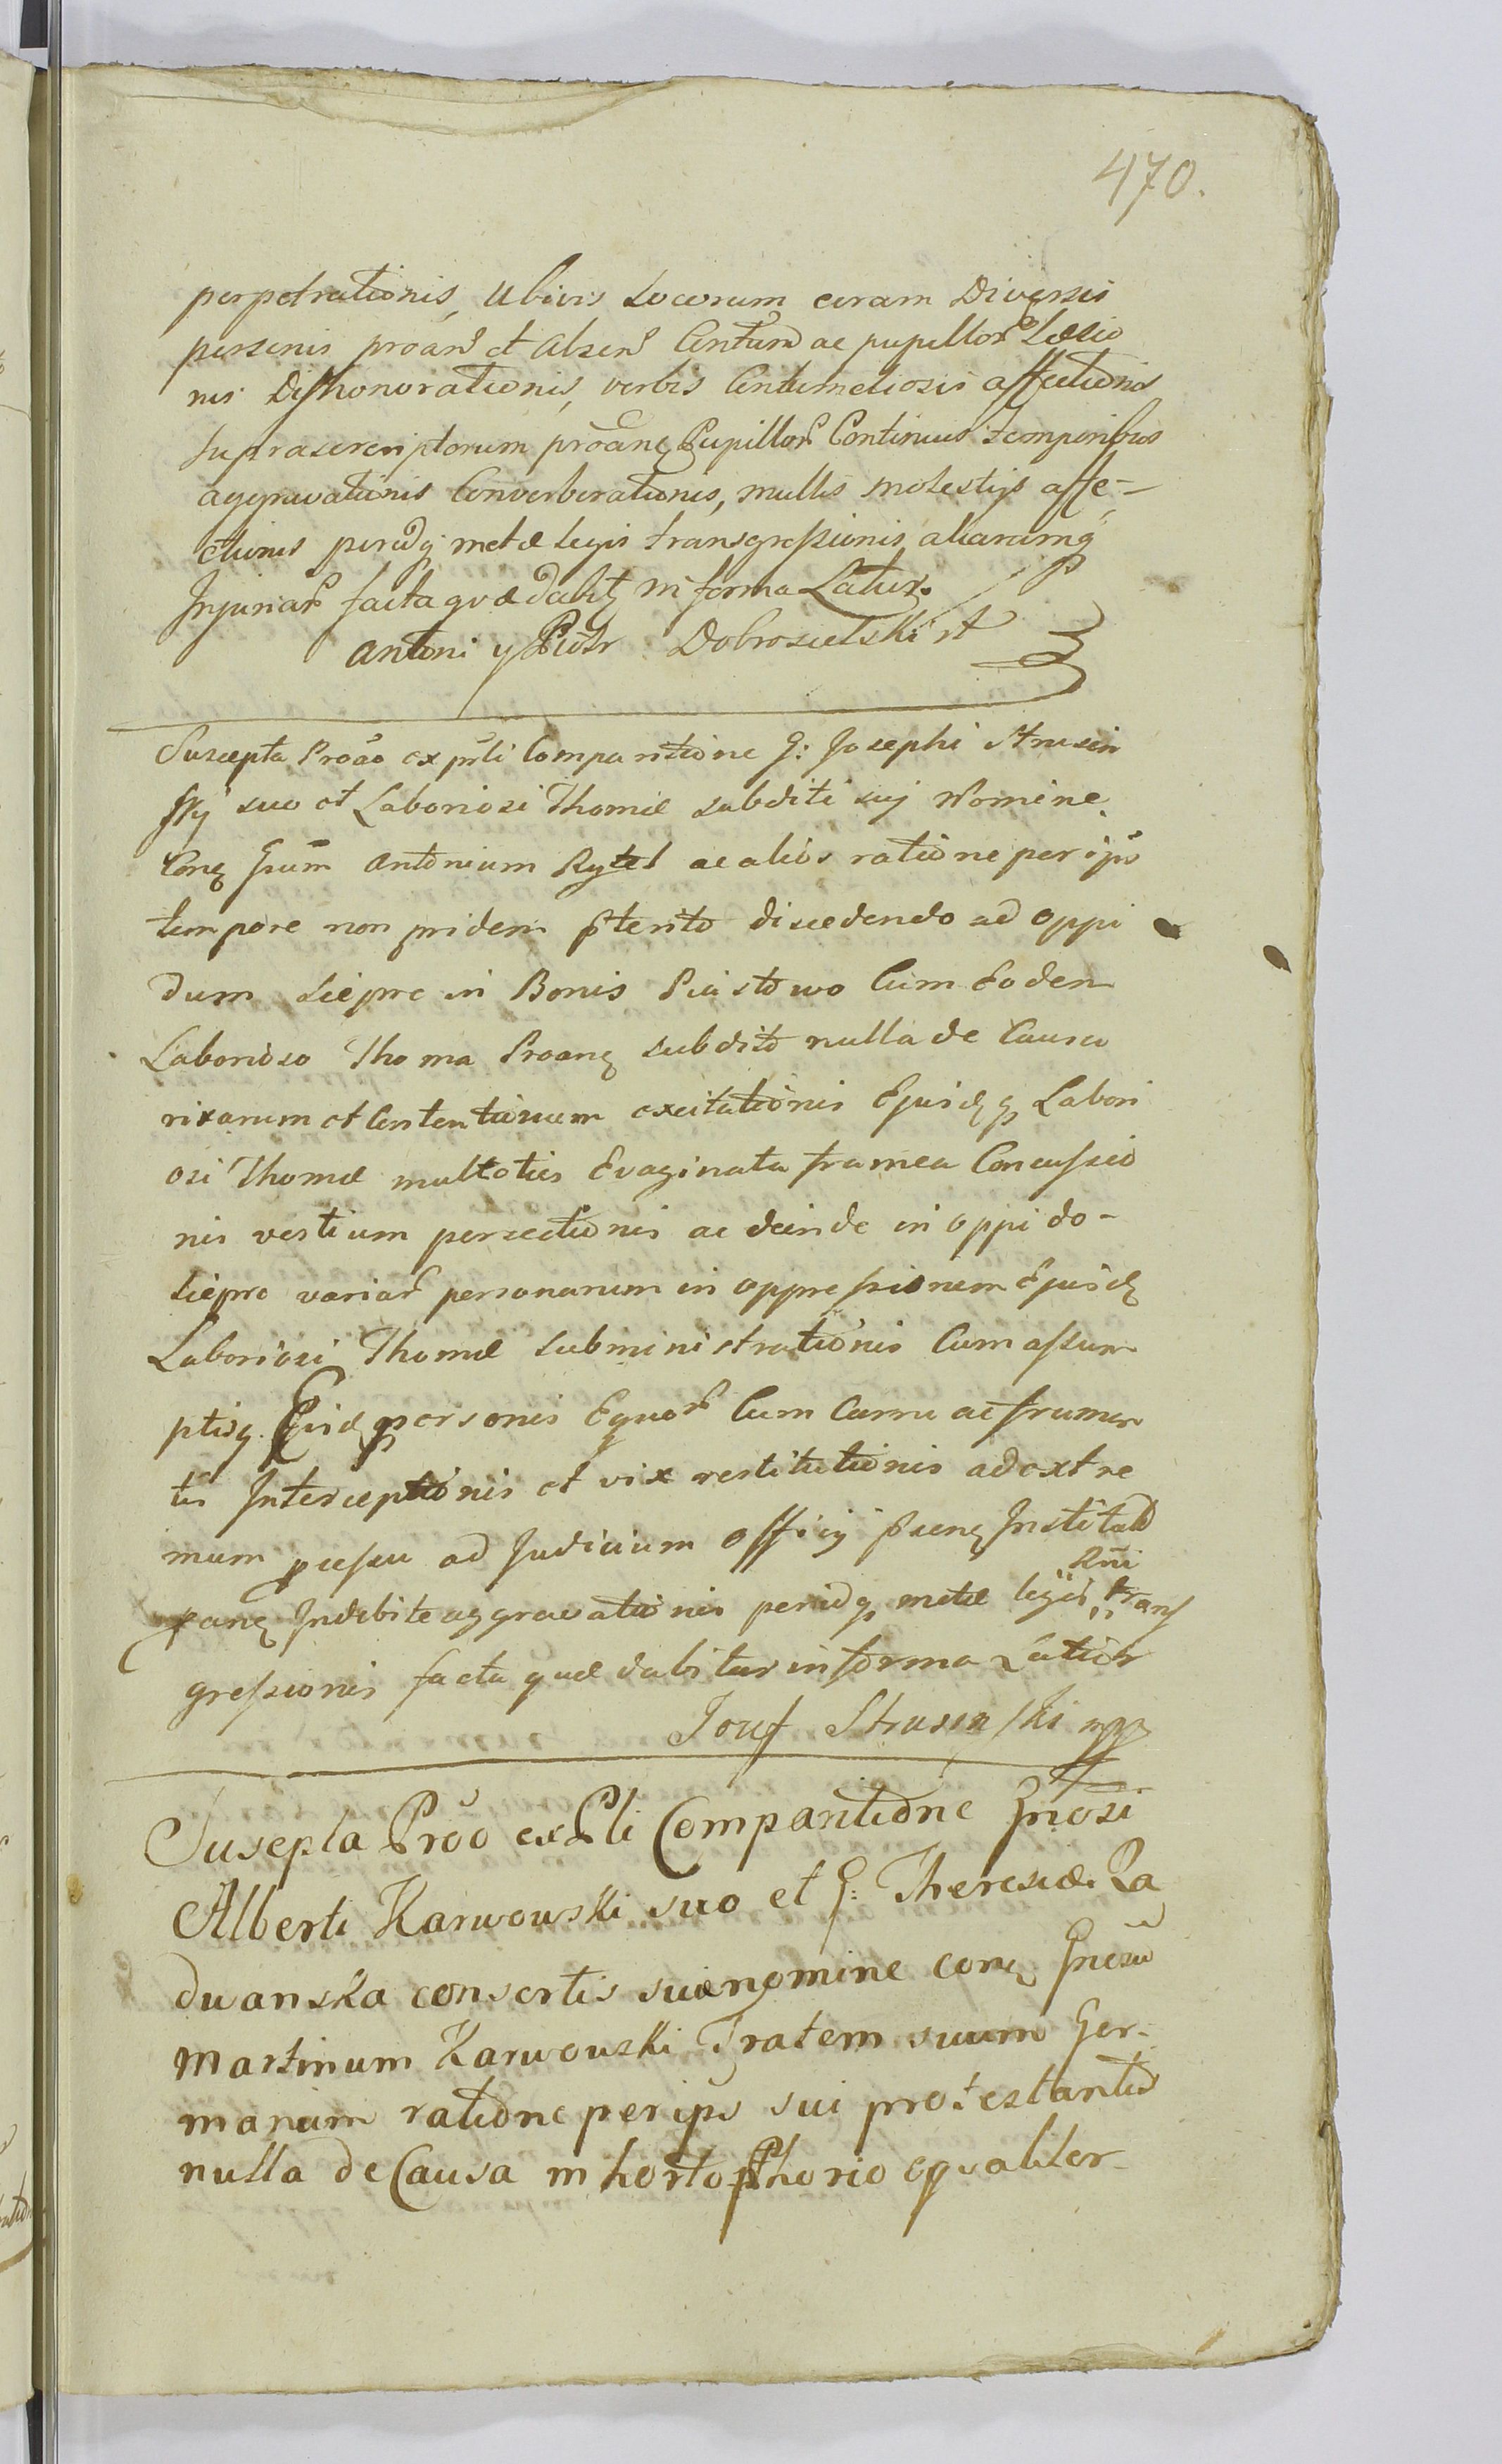 470.
perpetrationis, Ubivis Locorum coram Diversis
personis proan̄ et absen̄ Contum̄ ac pupillor̄ Læsio
nis Dishonorationis, verbis Contumeliosis affectionis
suprascriptorum proan̄ Pupillor̄ Continuis temporibus
aggravationis Converberationis, multis molestijs affe-
ctionis perindq metæ legis transgressionis aliarumq
Injuriar̄ facta quæ dabit in forma Latiȝ.
Antoni y Piotr Dobrosielski
Suscepta Proāo ex pn̄li Comparitione G: Josephi Strusin
skÿ suo et Laboriosi Thomæ subditi sui Nomine
Con̄ Gnūm Antonium Rytel ac alios ratione per ip̄s
tempore non pridem p̄terito discedendo ad oppi
dum Siepre in Bonis Piastowo Cum Eodem
Laborioso Thoma Proan̄ subdito nulla de Causa
rixarum et Contentionum excitationis Ejusdq Labori
osi Thomæ multoties Evaginata framea Concussio
nis vestium persectionis ac deinde in oppido-
Siepre variar̄ personarum in oppressionem Ejusd
Laboriosi Thomæ subministrationis Cum assum
ptisq Eisd personis Equor̄ Cum Curru ac frumen
tis Interceptionis et vix restitutionis ad extre
mum processu ad Judicium Officij p̄sen̄ Institutio
Rn̄i
pan̄ Indebite aggravationis perindq metæ legis trans
gressionis facta quæ dabitur in forma Latiori
Jouzf Strusinski mpp
Susepta Prōo ex Pn̄li Comparitione Gn̄osi
Alberti Karwowski suo et G: Theresiæ Ra
dwanska consortis suæ nomine con̄ Gn̄osu
Martinum Karwowski Fratem suum Ger-
manum ratione per ip̄s sui protestantis
nulla de Causa in horto equaliter